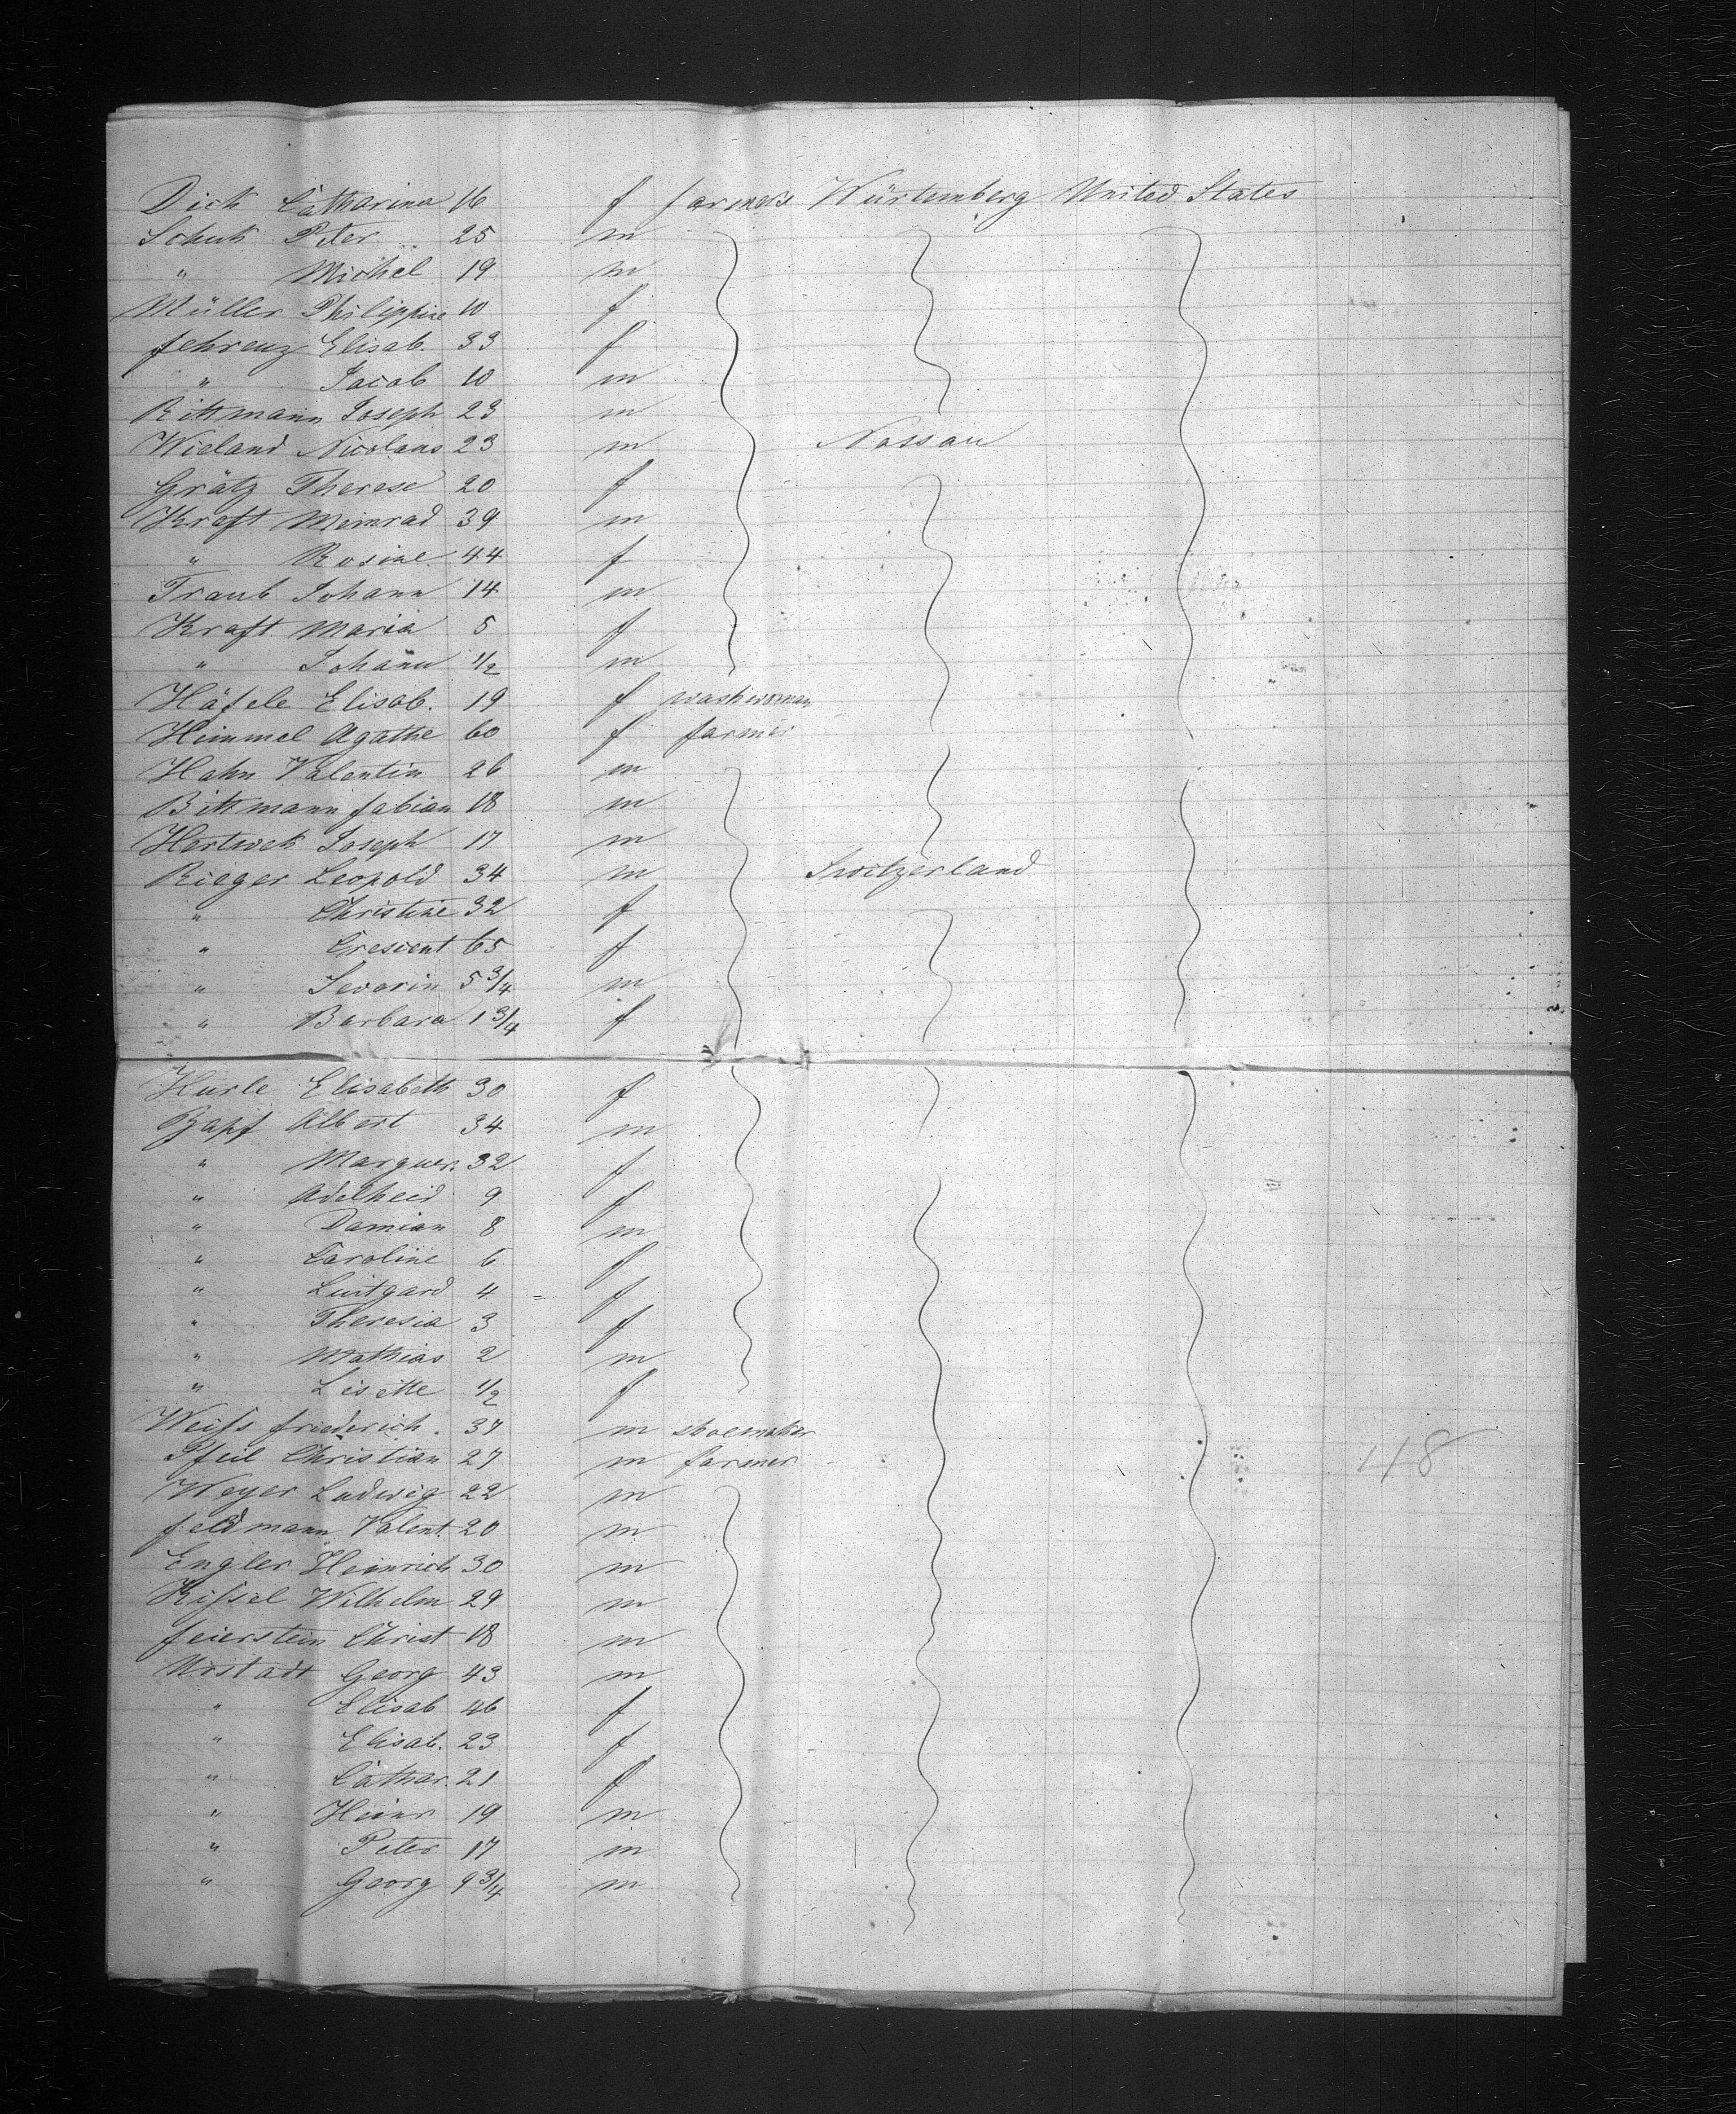 Dick Catharina 16 f farmers Würtemberg United States
Schuk Peter 25 m
" Michel 19 m
Müller Philippine 10 f
fehrenz Elisab. 33 f
" Jacob 10 m
Rittmann Joseph 23 m
Wieland Nicolaus 23 m Nassau
Grätz Therese 20 f
Kraft Meinrad 39 m
" Rosine 44 f
Traub Johann 14 m
Kraft Maria 5 f
" Johann 1/2 m
Häfele Elisab. 19 f washwoman
Himmel Agathe 60 f farmer
Hahn Valentin 26 m
Bittmann fabian 18 m
Hertwek Joseph 17 m
Rieger Leopold 34 m Switzerland
" Christine 32 f
" Crescent 65 f
" Severin 5 3/4 m
" Barbara 1 3/4 f
Kurle Elisabeth 30 f
Zapf Albert 34 m
" Marguer. 32 f
" Adelheid 9 f
" Damian 8 m
" Caroline 6 f
" Luitgard 4 f
" Theresia 3 f
" Mathias 2 m
" Lisette 1/2 f
Weiss friederich. 37 m shoemaker
Pfeil Christian 27 m farmer
48
Weyer Ludwig 22 m
feldmann Valent. 20 m
Engler Heinrich 30 m
Kissel Wilhelm 29 m
feierstein Christ 18 m
Urstadt Georg 43 m
" Elisab 46 f
" Elisab. 23 f
" Cathar. 21 f
" Heinr 19 m
" Peter 17 m
" Georg 9 3/4 m